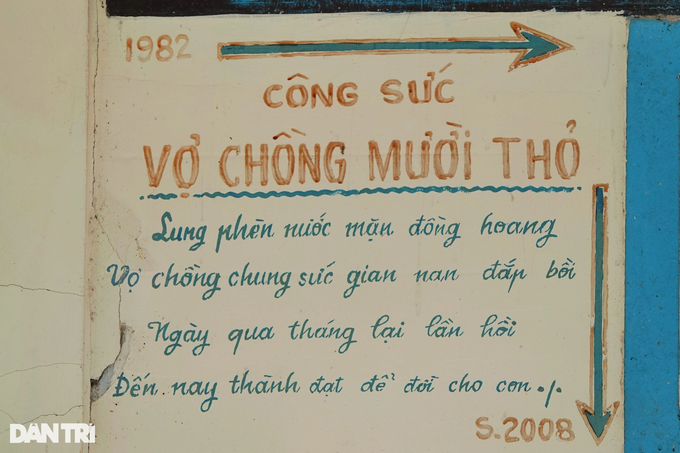 1982
CÔNG SỨC
VỢ CHỒNG MƯỜI THỎ
Lung phèn nước mặn đồng hoang
Vợ chồng chung sức gian nan đắp bồi
Ngày qua tháng lại lần hồi
Đến nay thành đạt để đời cho con ./.
S.2008
DÂN TRÍ